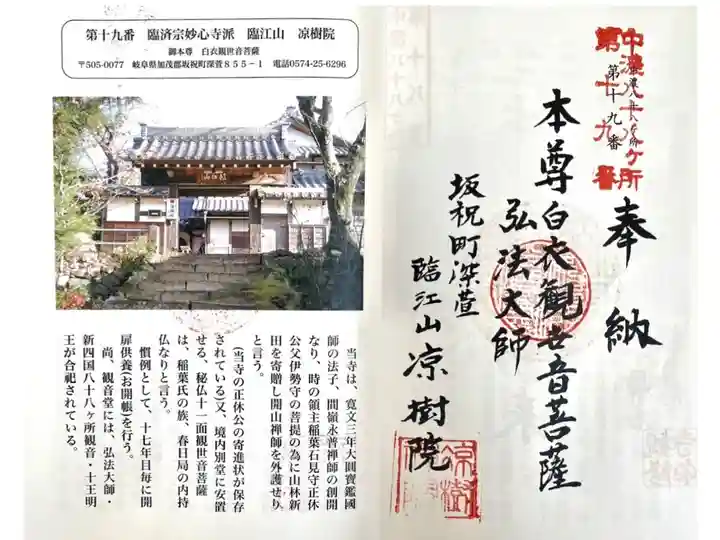 第十九番 臨済宗妙心寺派 臨江山 凉樹院
御本尊 白衣観世音菩薩
〒505-0077 岐阜県加茂郡坂祝町深萱855-1 電話0574-25-6296
当寺は、寛文三年大圓寶鑑國
師の法子、間嶺永普禅師の創開
なり、時の領主稲葉石見守正休
公父伊勢守の菩提の為に山林新
田を寄贈し開山禅師を外護せり
と言う。
(当寺の正休公の寄進状が保存
されている)又、境内別堂に安置
せる、秘仏十一面観世音菩薩
は、稲葉氏の族、春日局の内持
仏なりと言う。
慣例として、十七年目毎に開
扉供養(お開帳)を行う。
尚、観音堂には、弘法大師・
新四国八十八ヶ所観音・十王明
王が合祀されている。
中濃八十八ヶ所
第十九番
第十九番
奉納
本尊白衣観世音菩薩
弘法大師
坂祝町深萱
臨江山凉樹院
凉樹